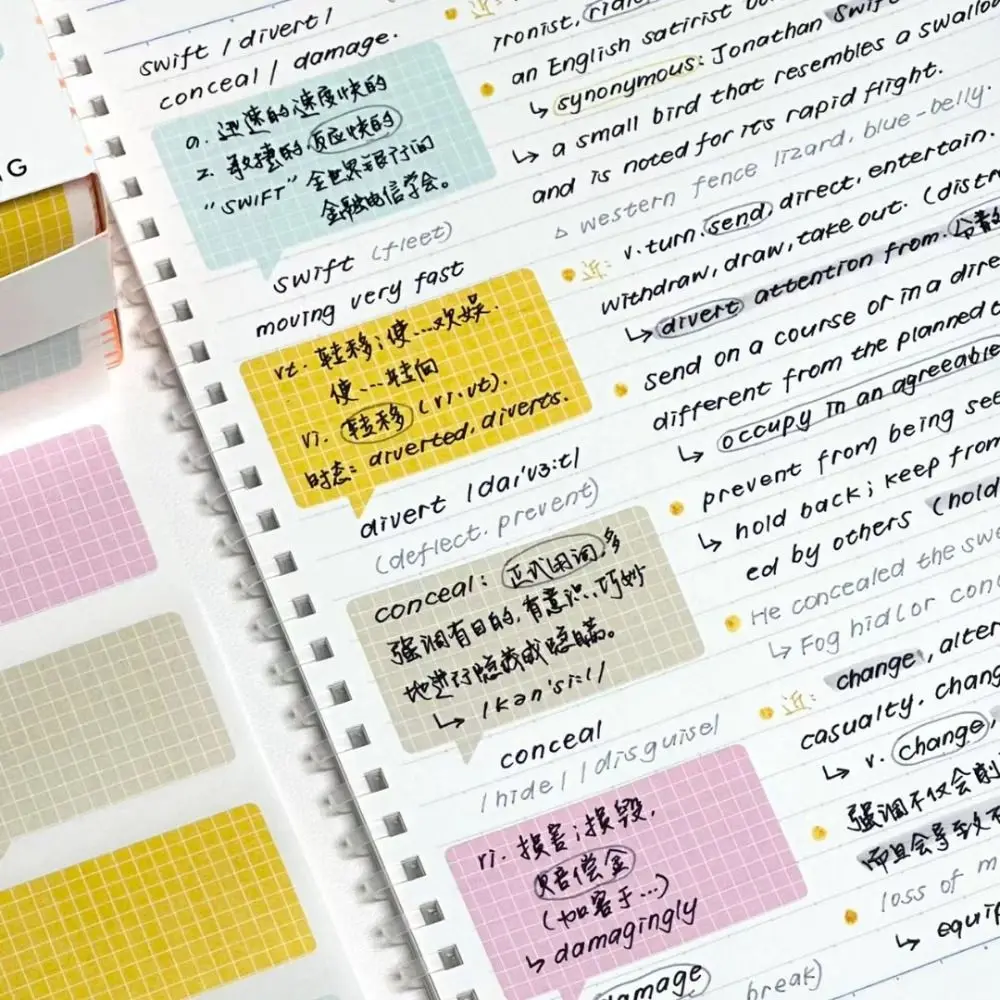 swift / divert /
conceal / damage.
a. 迅速的、速度快的
2. 敏捷的,反应快的
"SWIFT" 全世界银行间
金融电信学会。
swift (fleet)
moving very fast
vt. 转移;使...欢娱.
使...转向
vi. 转移 (vi.vt).
时态: diverted, diverts.
divert /dai'vɜ:t/
(deflect. prevent)
conceal: 正式用词,多
强调有目的,有意识、巧妙
地进行隐藏或隐瞒。
↳ /kən'si:l/
conceal
/hide/ /disguise/
vi. 损害;损毁,
赔偿金
(加害于...)
↳ damagingly
damage
break)
近:
ironist,
an English satirist
↳ synonymous: Jonathan Swift
a small bird that resembles a swallow
↳ and is noted for its rapid flight.
△ western fence lizard, blue-belly.
近: v. turn, send, direct, entertain.
withdraw, draw, take out. (distr
↳ divert attention from.
send on a course or in a dire
different from the planned
↳ occupy in an agreeable
prevent from being see
↳ hold back; keep from
ed by others (hold
He concealed the swe
↳ Fog hid (or conc
近: change, alter
casualty. chang
↳ v. change,
强调不仅会削
而且会导致不
loss of m
↳ equip
G